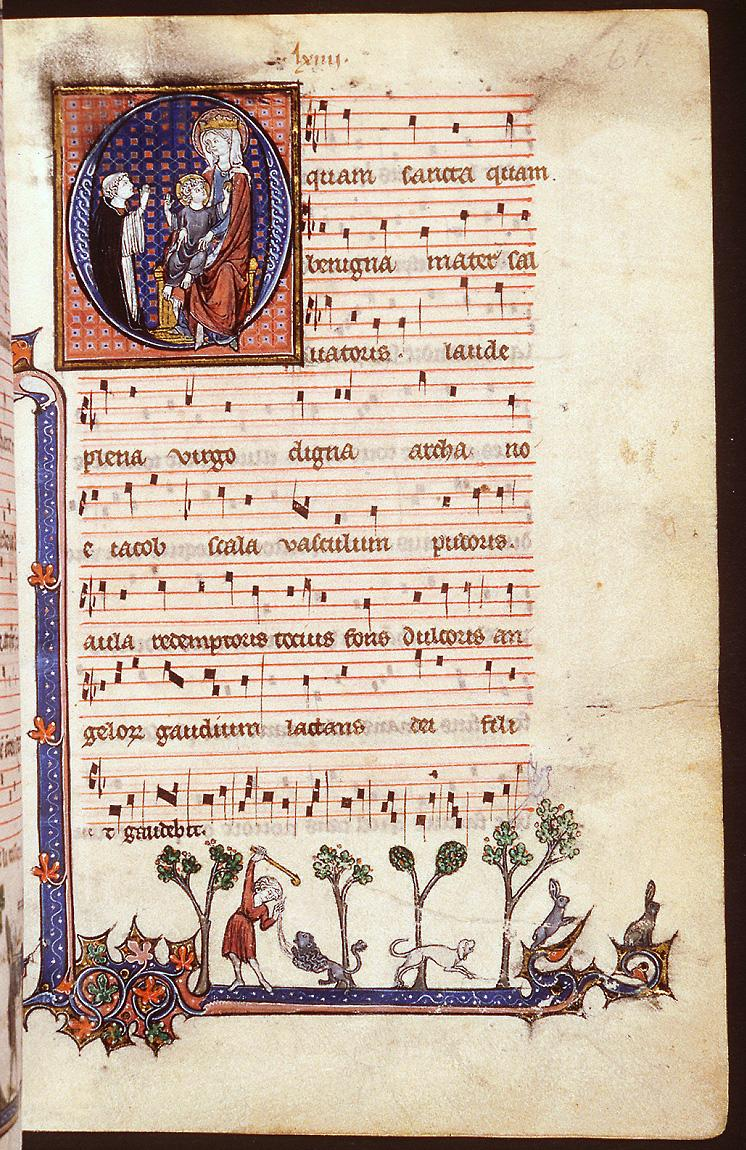 lxiiii.
64
quam sancta quam.
benigna mater sal
uatoris. laude
plena virgo digna archa no
e iacob scala vasculum pudoris.
aula redemptoris tocius fons dulcoris an
geloꝝ gaudium lactans dei fili
u t gaudebit.